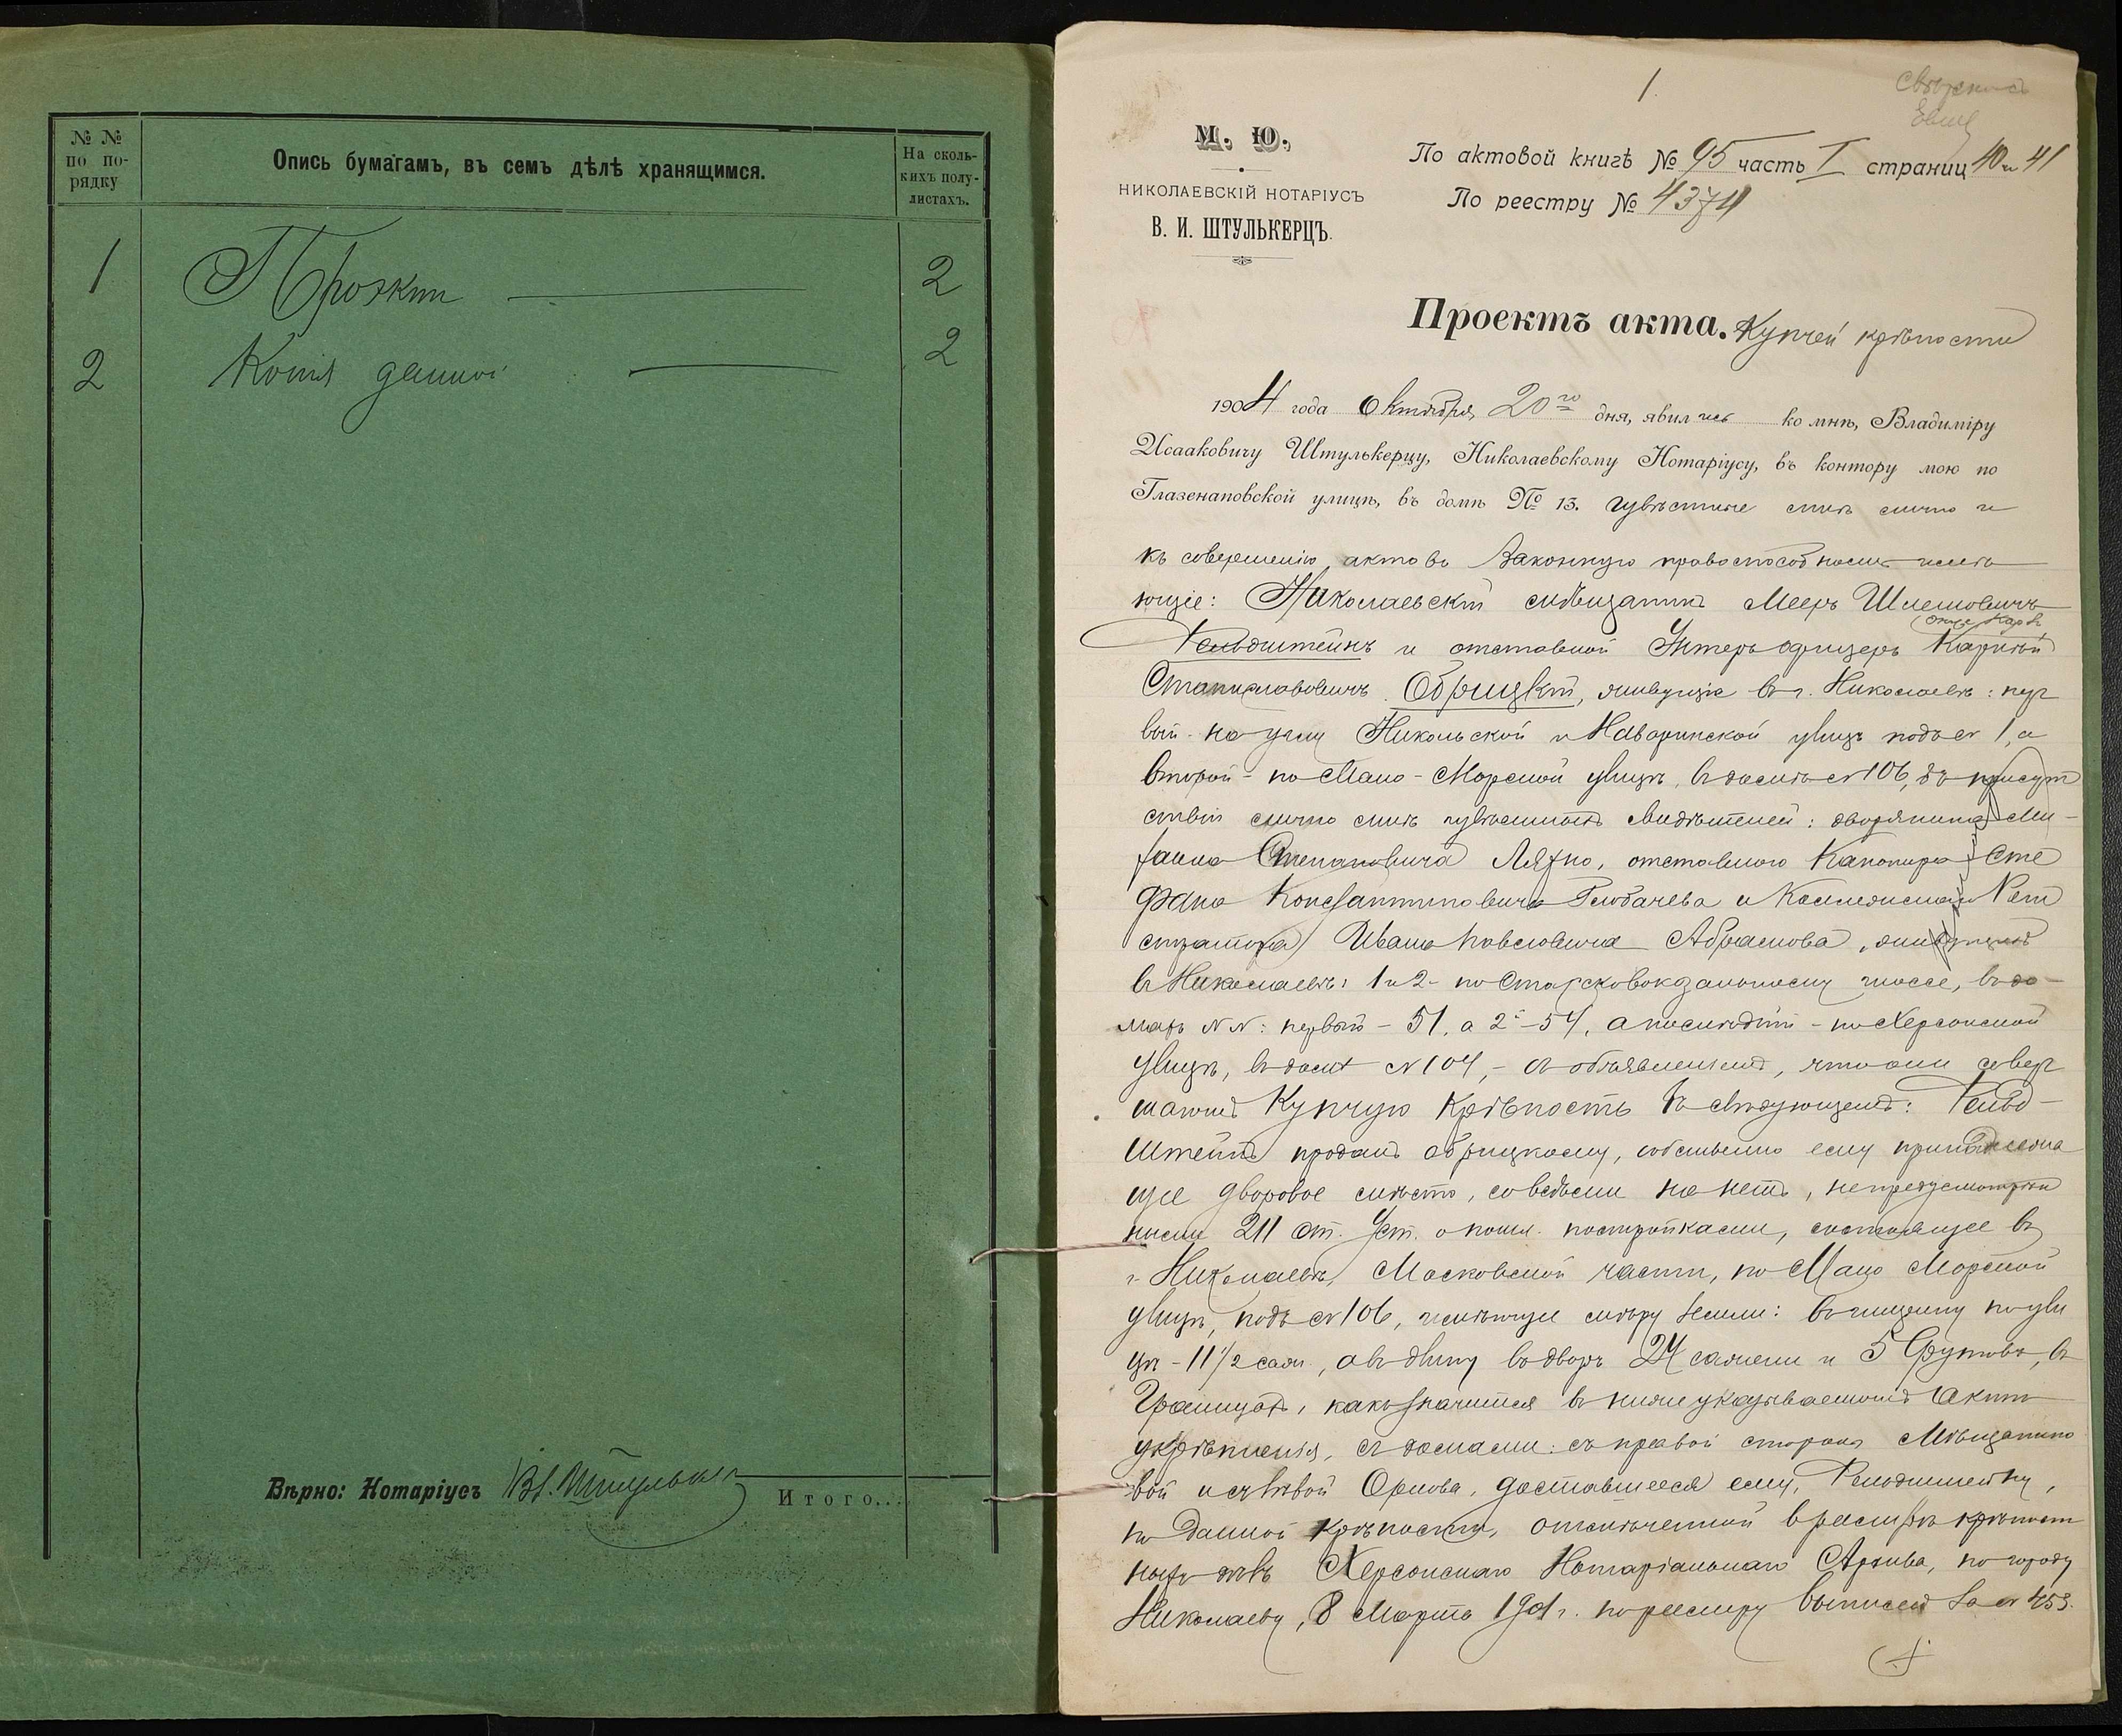 № №
по по-
рядку
Опись бумагамъ, въ семъ дѣлѣ хранящимся.
На сколь-
кихъ полу-
листахъ.
1 Проэктъ 2
2 Копія данной 2
Вѣрно: Нотаріусъ Вл. Штульк
Итого...
1.
М. Ю.
НИКОЛАЕВСКІЙ НОТАРІУСЪ
В. И. ШТУЛЬКЕРЦЪ.
По актовой книгѣ № 95 часть I страниц 40 и 41
По реестру № 4374
Проектъ акта. Купчей крѣпости
1904 года Октября 20го дня, явились ко мнѣ, Владиміру
Исааковичу Штулькерцу, Николаевскому Нотаріусу, въ контору мою по
Глазенаповской улицѣ, въ домѣ № 13. извѣстные мнѣ лично и
къ совершенію актовъ законную правоспособность имѣ
ющіе: Николаевскій мѣщанинъ Мееръ Шлемовичъ
Гельдштейнъ и отставной Унтеръ офицеръ
Станиславовичъ Обрицкій, живущіе въ г. Николаевѣ: пер
вый на углу Никольской и Наваринской улицъ подъ № 1, а
второй - по Мало-Морской улицѣ, въ домѣ № 106, въ присут
ствіи лично мнѣ извѣстныхъ свидѣтелей: дворянина Ми-
хаила Степановича отставного Канонира Сте
фана Константиновича и Коллежскаго Реги
стратора Ивана Павловича Абрамова, живущихъ
въ Николаевѣ: 1 и 2 - по Старовокзальному шоссе, въ до-
махъ №№: первый - 51, а 2й - 54, а послѣдній - по Херсонской
улицѣ, въ домѣ № 104, - съ объявленіемъ, что они совер
шаютъ Купчую крѣпость въ слѣдующемъ: Гельд-
штейнъ продалъ Обрицкому, собственно ему принадлежа
щее дворовое мѣсто, со всѣми на немъ, непредусмотрѣн
ными 211 ст. Уст. о пошл. постройками, состоящее въ
г. Николаевѣ, Московской части, по Мало Морской
улицѣ, подъ № 106, имѣющее мѣру земли: въ ширину по ули
цѣ - 11 1/2 саж., а въ длину во дворъ 24 сажени и 5 футовъ, въ
границахъ, какъ значится въ нижеуказываемомъ актѣ
укрѣпленія, съ домами: съ правой стороны Мѣщанино
вой и съ лѣвой Орлова, доставшееся ему, Гельдштейну,
по Данной крѣпости, отмѣченной въ реестрѣ крѣпост
ныхъ дѣлъ Херсонскаго Нотаріальнаго Архива, по городу
Николаеву, 8 Марта 1901 г. по реестру выписей за № 453.